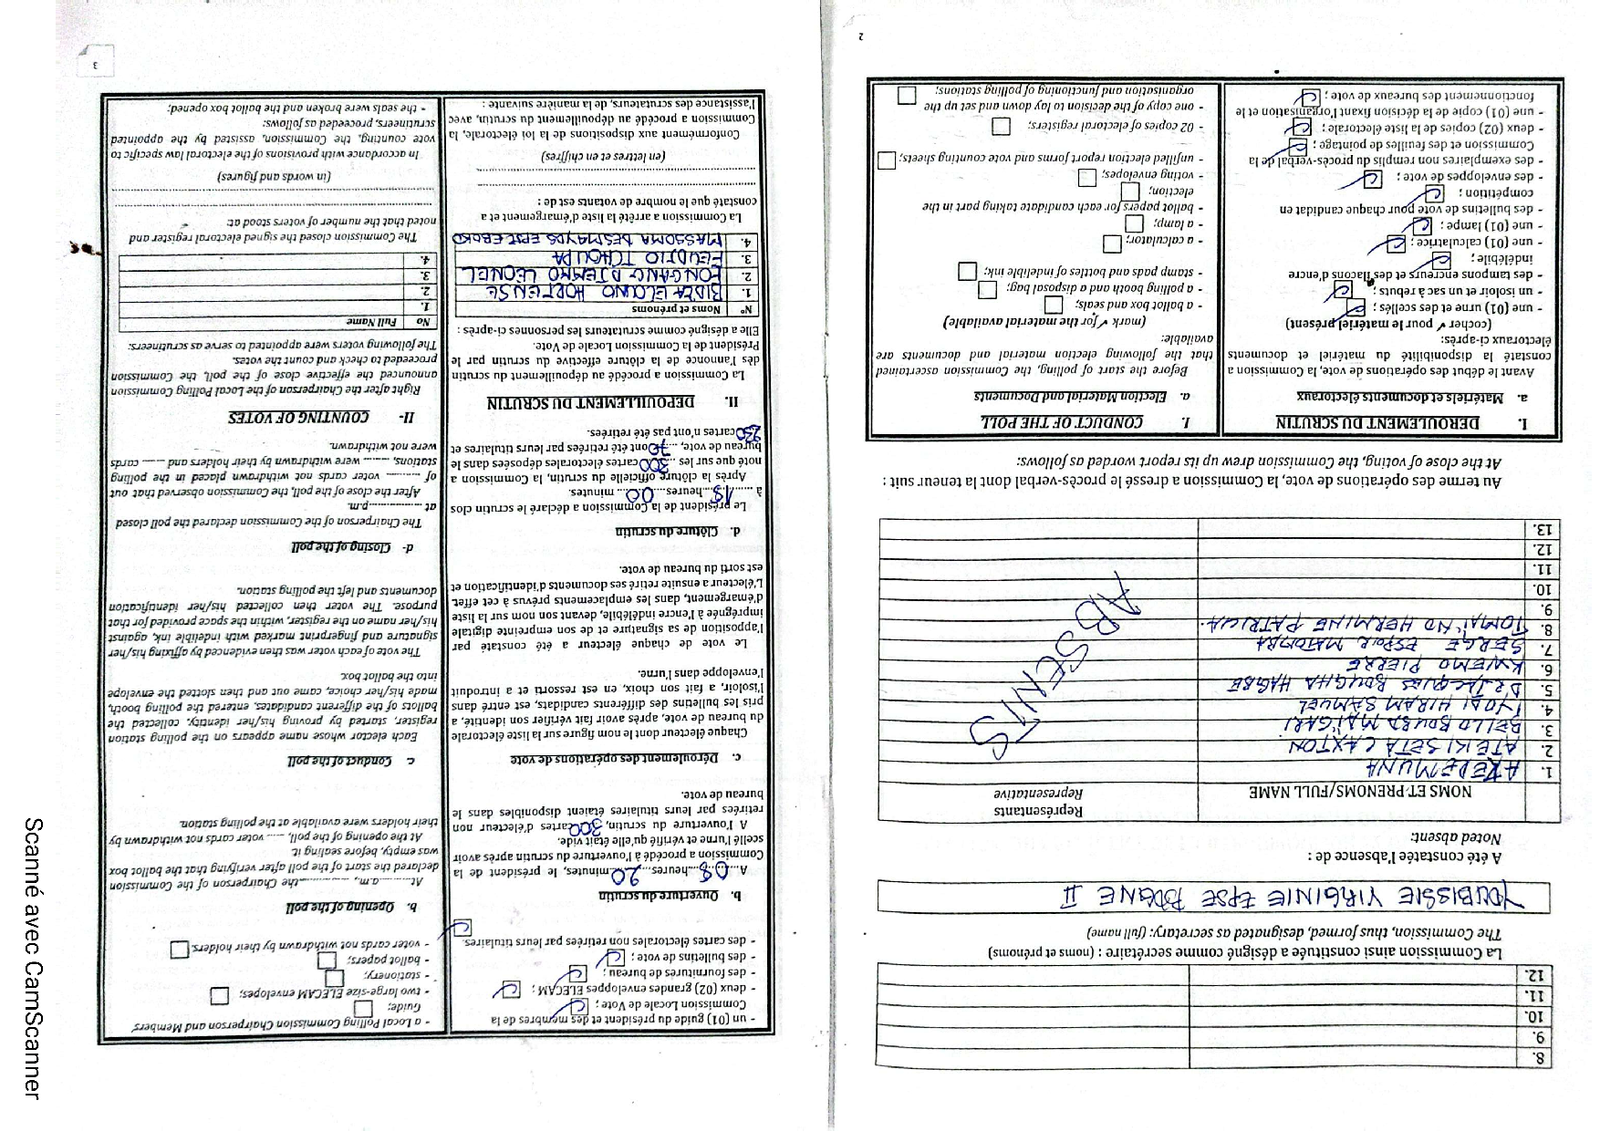 8.
9.
10.
11.
12.
La Commission ainsi constituée a désigné comme secrétaire : (noms et prénoms)
The Commission, thus formed, designated as secretary: (full name)
YOUBISSIE VIRGINIE EPSE BOGNE II
A été constatée l'absence de :
Noted absent:
NOMS ET PRENOMS/FULL NAME
Représentants
Representative
1. AKEDEMUNA
2. ATEKI SETA CAXTON
3. BELLO BOUBA MAÏGARI
4. IYODI HIRAM SAMUEL
5. DR JACQUES BOUGHA HAGBE
6. KWEMO PIERRE
7. SERGE ESPOIR MATOMBA
8. TOMAÏNO HERMINE PATRICIA.
9.
10.
11.
12.
13.
ABSENTS
Au terme des opérations de vote, la Commission a dressé le procès-verbal dont la teneur suit :
At the close of voting, the Commission drew up its report worded as follows:
I. DEROULEMENT DU SCRUTIN
a. Matériels et documents électoraux
Avant le début des opérations de vote, la Commission a
constaté la disponibilité du matériel et documents
électoraux ci-après:
(cocher ✓ pour le matériel présent)
- une (01) urne et des scellés ;
- un isoloir et un sac à rebuts ;
- des tampons encreurs et des flacons d'encre
indélébile ;
- une (01) calculatrice ;
- une (01) lampe ;
- des bulletins de vote pour chaque candidat en
compétition ;
- des enveloppes de vote ;
- des exemplaires non remplis du procès-verbal de la
Commission et des feuilles de pointage ;
- deux (02) copies de la liste électorale ;
- une (01) copie de la décision fixant l'organisation et le
fonctionnement des bureaux de vote ;
I. CONDUCT OF THE POLL
a. Election Material and Documents
Before the start of polling, the Commission ascertained
that the following election material and documents are
available:
(mark ✓ for the material available)
- a ballot box and seals;
- a polling booth and a disposal bag;
- stamp pads and bottles of indelible ink;
- a calculator;
- a lamp;
- ballot papers for each candidate taking part in the
election;
- voting envelopes;
- unfilled election report forms and vote counting sheets;
- 02 copies of electoral registers;
- one copy of the decision to lay down and set up the
organisation and functioning of polling stations;
2
- un (01) guide du président et des membres de la
Commission Locale de Vote ;
- deux (02) grandes enveloppes ELECAM ;
- des fournitures de bureau ;
- des bulletins de vote ;
- des cartes électorales non retirées par leurs titulaires.
b. Ouverture du scrutin
A 08 heures 20 minutes, le président de la
Commission a procédé à l'ouverture du scrutin après avoir
scellé l'urne et vérifié qu'elle était vide.
A l'ouverture du scrutin, 300 cartes d'électeur non
retirées par leurs titulaires étaient disponibles dans le
bureau de vote.
c. Déroulement des opérations de vote
Chaque électeur dont le nom figure sur la liste électorale
du bureau de vote, après avoir fait vérifier son identité, a
pris les bulletins des différents candidats, est entré dans
l'isoloir, a fait son choix, en est ressorti et a introduit
l'enveloppe dans l'urne.
Le vote de chaque électeur a été constaté par
l'apposition de sa signature et de son empreinte digitale
imprégnée à l'encre indélébile, devant son nom sur la liste
d'émargement, dans les emplacements prévus à cet effet.
L'électeur a ensuite retiré ses documents d'identification et
est sorti du bureau de vote.
d. Clôture du scrutin
Le président de la Commission a déclaré le scrutin clos
à 18 heures 00 minutes.
Après la clôture officielle du scrutin, la Commission a
noté que sur les 300 cartes électorales déposées dans le
bureau de vote, 70 ont été retirées par leurs titulaires et
230 cartes n'ont pas été retirées.
II. DEPOUILLEMENT DU SCRUTIN
La Commission a procédé au dépouillement du scrutin
dès l'annonce de la clôture effective du scrutin par le
Président de la Commission Locale de Vote.
Elle a désigné comme scrutateurs les personnes ci-après :
N° Noms et prénoms
1. BIDJA ELONO HORTENSE
2. FONGANG DJEMMO LEONEL
3. FEUDJIO TCHOUPA
4. MASSOMA DESMAYDS EPSE EBOKO
La Commission a arrêté la liste d'émargement et a
constaté que le nombre de votants est de :
(en lettres et en chiffres)
Conformément aux dispositions de la loi électorale, la
Commission a procédé au dépouillement du scrutin, avec
l'assistance des scrutateurs, de la manière suivante :
- a Local Polling Commission Chairperson and Members'
Guide;
- two large-size ELECAM envelopes;
- stationery;
- ballot papers;
- voter cards not withdrawn by their holders.
b. Opening of the poll
At..........a.m., ............the Chairperson of the Commission
declared the start of the poll after verifying that the ballot box
was empty, before sealing it.
At the opening of the poll, ...... voter cards not withdrawn by
their holders were available at the polling station.
c. Conduct of the poll
Each elector whose name appears on the polling station
register, started by proving his/her identity, collected the
ballots of the different candidates, entered the polling booth,
made his/her choice, came out and then slotted the envelope
into the ballot box.
The vote of each voter was then evidenced by affixing his/her
signature and fingerprint marked with indelible ink, against
his/her name on the register, within the space provided for that
purpose. The voter then collected his/her identification
documents and left the polling station.
d- Closing of the poll
The Chairperson of the Commission declared the poll closed
at ...............p.m.
After the close of the poll, the Commission observed that out
of ........... voter cards not withdrawn placed in the polling
stations, ........ were withdrawn by their holders and ...... cards
were not withdrawn.
II- COUNTING OF VOTES
Right after the Chairperson of the Local Polling Commission
announced the effective close of the poll, the Commission
proceeded to check and count the votes.
The following voters were appointed to serve as scrutineers:
No Full Name
1.
2.
3.
4.
The Commission closed the signed electoral register and
noted that the number of voters stood at:
(in words and figures)
In accordance with provisions of the electoral law specific to
vote counting, the Commission, assisted by the appointed
scrutineers, proceeded as follows:
- the seals were broken and the ballot box opened;
3
Scanné avec CamScanner